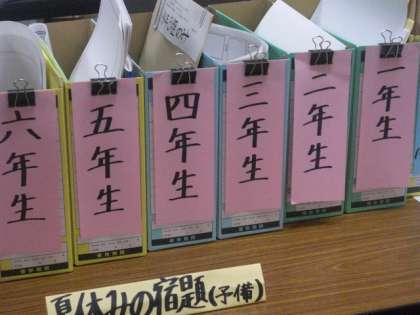 六年生
五年生
四年生
三年生
二年生
一年生
夏休みの宿題(予備)